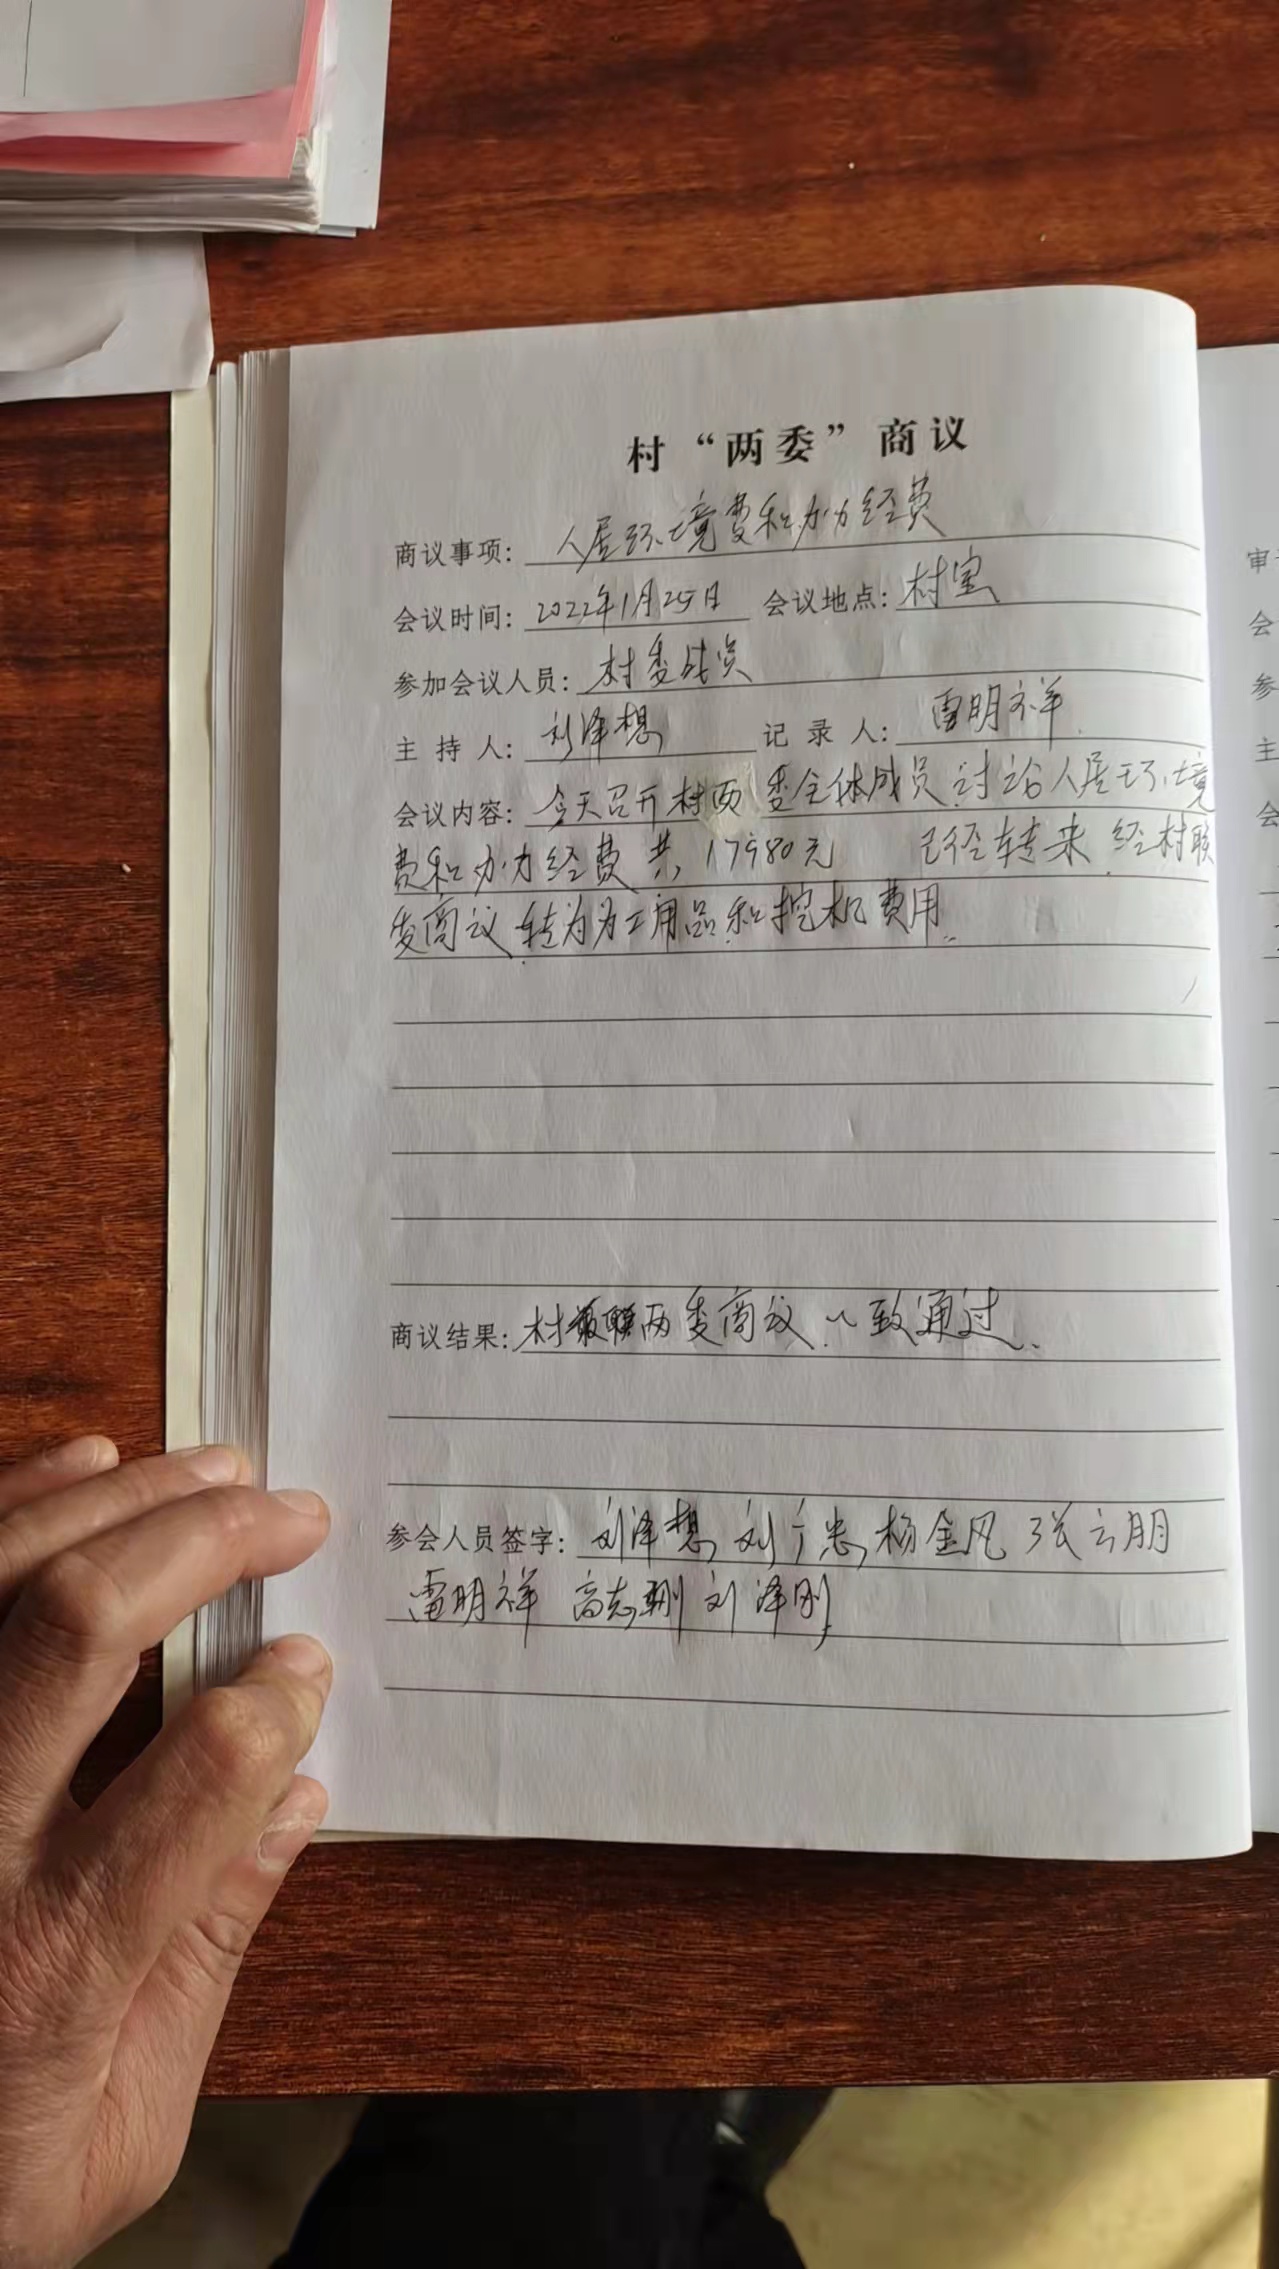 村“两委”商议
商议事项：人居环境费和办公经费
会议时间：2022年1月25日 会议地点：村室
参加会议人员：村委成员
主持人：刘泽想 记录人：雷明祥
会议内容：今天召开村两委全体成员讨论人居环境
费和办公经费共17980元 已经转来 经村联
委商议 转为为工用品和挖机费用
商议结果：村两委商议 一致通过
参会人员签字：刘泽想 刘广忠 杨金凤 张云朋
雷明祥 高志刚 刘泽刚
审
会
参
主
会